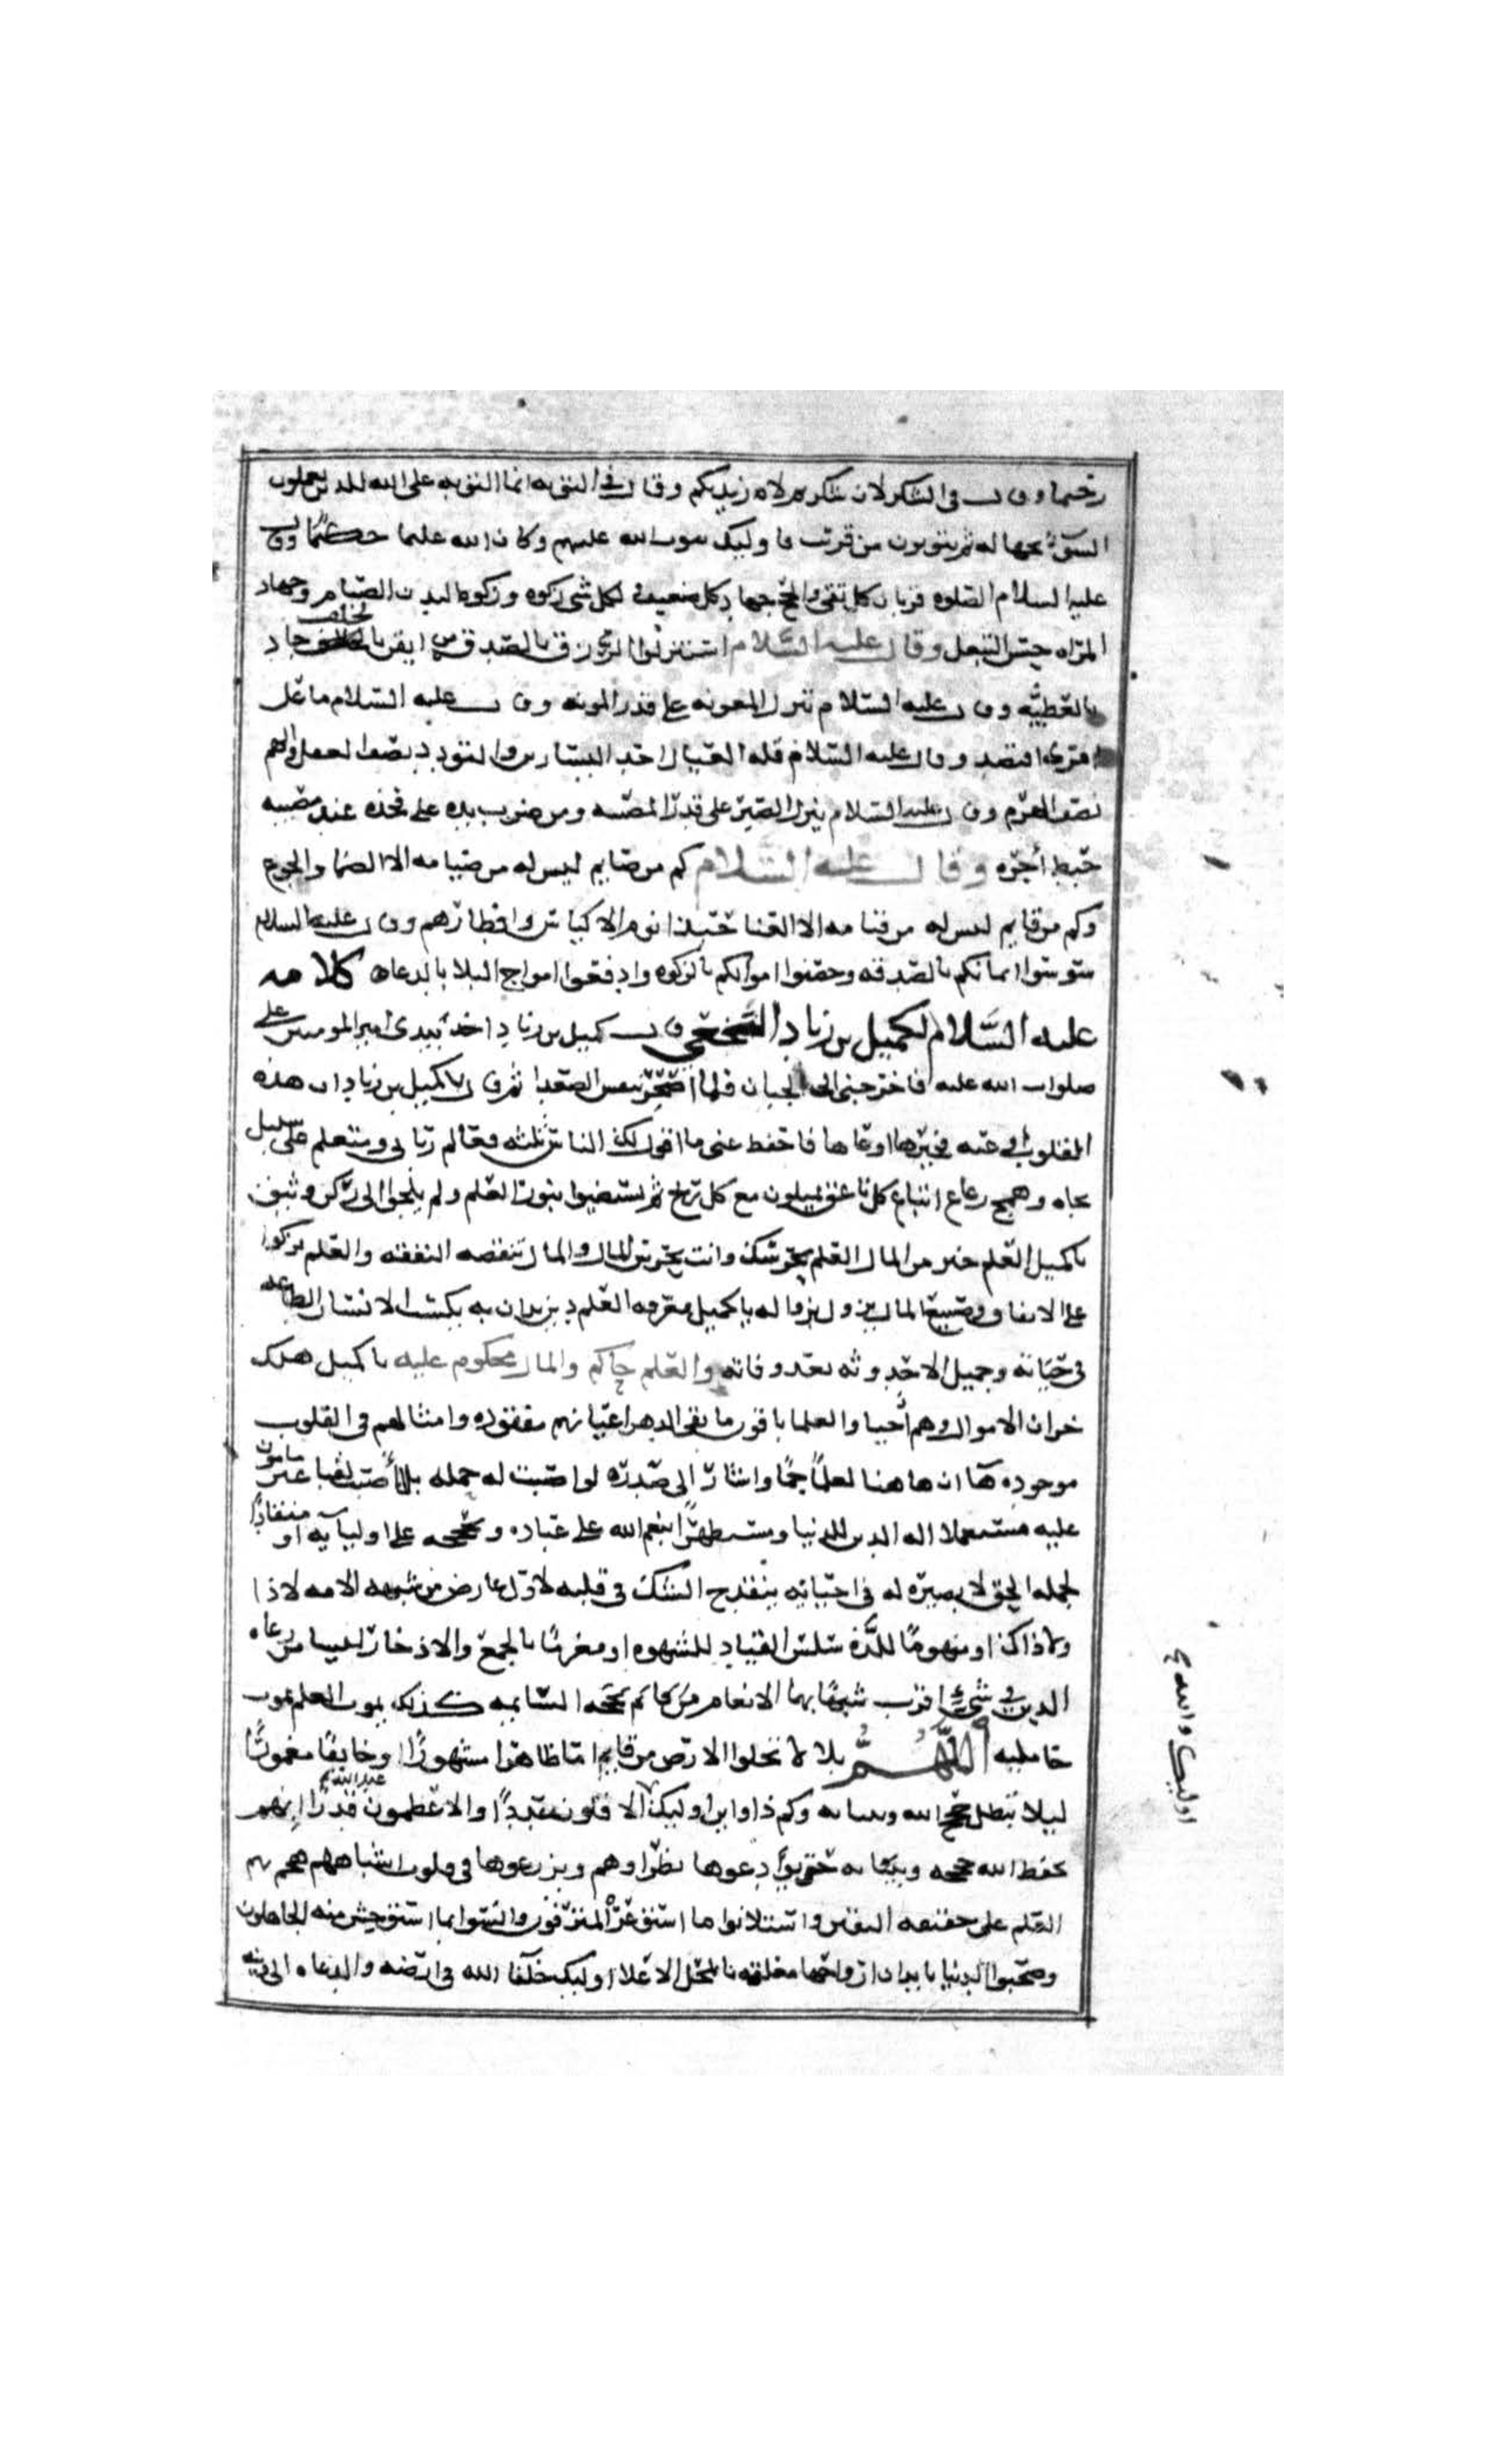 رحيما وقال في الشكر لان شكرتم لازيدنكم وقال في التوبه انما التوبه على الله للذين يعملون
السوٓء بجهاله ثم يتوبون من قريب فاوليك يتوب الله عليهم وكان الله عليما حكيمًا وقال
عليه السلام الصلوه قربان كل تقي والحج جهاد كل ضعيف لكل شي زكوه وزكوه البدن الصيام وجهاد
المراه حسن التبعل وقال عليه السلام استنزلوا الرزق بالصدقه من ايقن بالخلف جاد
بالعطيه وقال عليه السلام تنزل المعونه على قدر المونه وقال عليه السلام ما عال
امرى اقتصد وقال عليه السلام قله العيال احد اليسارين والتودد نصف العقل والهم
نصف الهرم وقال عليه السلام ينزل الصبر على قدر المصيبه ومن ضرب يده على فخذه عند مصيبه
حبط أجره وقال عليه السلام كم من صايم ليس له من صيامه الا الظما والجوع
وكم من قايم ليس له من قيامه الا العنا حبذا نوم الاكياس وافطارهم وقال عليه السلام
سوسوا ايمانكم بالصدقه وحصنوا اموالكم بالزكوه وادفعوا امواج البلا بالدعاء كلامه
عليه السلام لكميل بن زياد النخعي قال كميل بن زياد اخذ بيدي امير المومنين علي
صلوات الله عليه فاخرجني الى الجبان فلما اصحر تنفس الصعدا ثم قال يا كميل بن زياد ان هذه
القلوب أوعيه فخيرها اوعاها فاحفظ عني ما اقول لك الناس ثلثه فعالم رباني ومتعلم على سبيل
نجاه وهمج رعاع اتباع كل ناعق يميلون مع كل ريح لم يستضيوا بنور العلم ولم يلجوا الى ركن وثيق
يا كميل العلم خير من المال العلم يحرسك وانت تحرس المال والمال تنقصه النفقه والعلم يزكوا
على الانفاق وصنيع المال يزول بزواله يا كميل معرفه العلم دين يدان به يكسب الانسان الطاعه
في حياته وجميل الاحدوثه بعد وفاته والعلم حاكم والمال محكوم عليه يا كميل هلك
خزان الاموال وهم أحيا والعلما باقون ما بقي الدهر اعيانهم مفقوده وامثالهم في القلوب
موجوده هآ ان هاهنا لعلمًا جمًا واشار الى صدره لو اصبت له حمله بلى أصبت لقنا غير مامون
عليه مستعملا اله الدين للدنيا ومستظهرًا بنعم الله على عباده وبحججه على اوليايه او منقادًا
لحمله الحق لا بصيره له في احنايه ينقدح الشك في قلبه لاول عارض من شبهه الا مه لا ذا
ولا ذاك او منهومًا للذه سلس القياد للشهوه او مغرمًا بالجمع والادخار ليسا من رعاه
الدين في شيء اقرب شبهًا بهما الانعام السايمه كذلك يموت العلم بموت
حامليه أللهُمَّ بلى لا تخلوا الارض من قايم اما ظاهرا مشهورًا او خايفًا مغمورًا
ليلا تبطل حجج الله وبيناته وكم ذا واين اوليك الاقلون عددًا والاعظمون عند الله قدرًا بهم
يحفظ الله حججه وبيناته حتى يودعوها نظراوهم ويزرعوها في قلوب اشباههم هجم بهم
العلم على حقيقه اليقين واستلانوا ما استوعره المترفون وانسوا بما استوحش منه الجاهلون
وصحبوا الدنيا بابدان ارواحها معلقه بالمحل الاعلا اوليك خلفآ الله في ارضه والدعاه الى دينه
اوليك والله